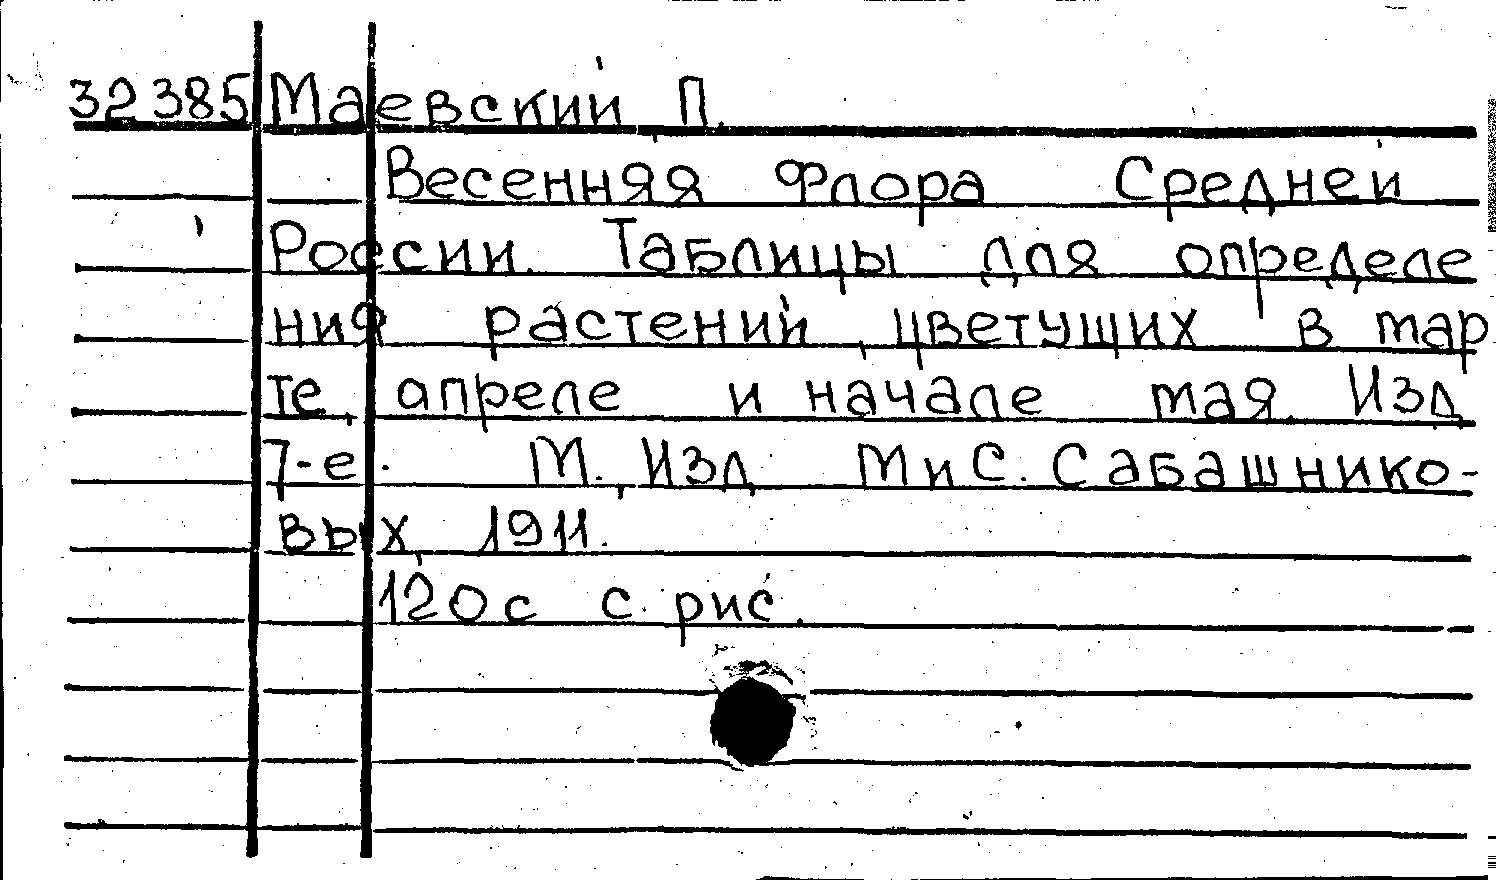 32385 Маевский, П.
Весенняя Флора Средней
России. Таблицы для определе
ния растений, цветущих в мар
те, апреле и начале мая. Изд
7-е. М., Изд. М и С. Сабашнико-
вых, 1911.
120 с с. рис.